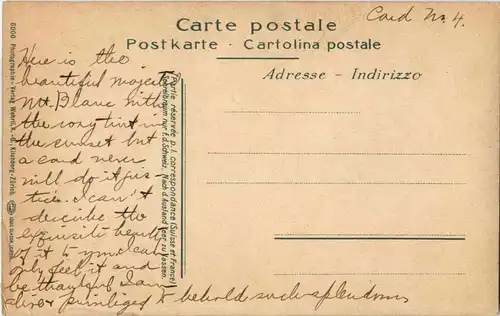 Carte postale
Card No. 4.
Postkarte - Cartolina postale
Adresse - Indirizzo
Here is the
beautiful majestic
Mt. Blanc with
the rosy tint in
the sunset but
a card never
will do it jus-
tice. I can't
describe the
exquisite beauty
of it to you I can
only feel it and
be thankful I am
alive & privileged to behold such splendours
Partie réservée p. l. correspondance (Suisse et France)
Schreibraum nur f. d. Schweiz. Nach d. Ausland leer zu lassen.
6060 Photographie-Verlag Wehrli A.-G., Kilchberg-Zürich.